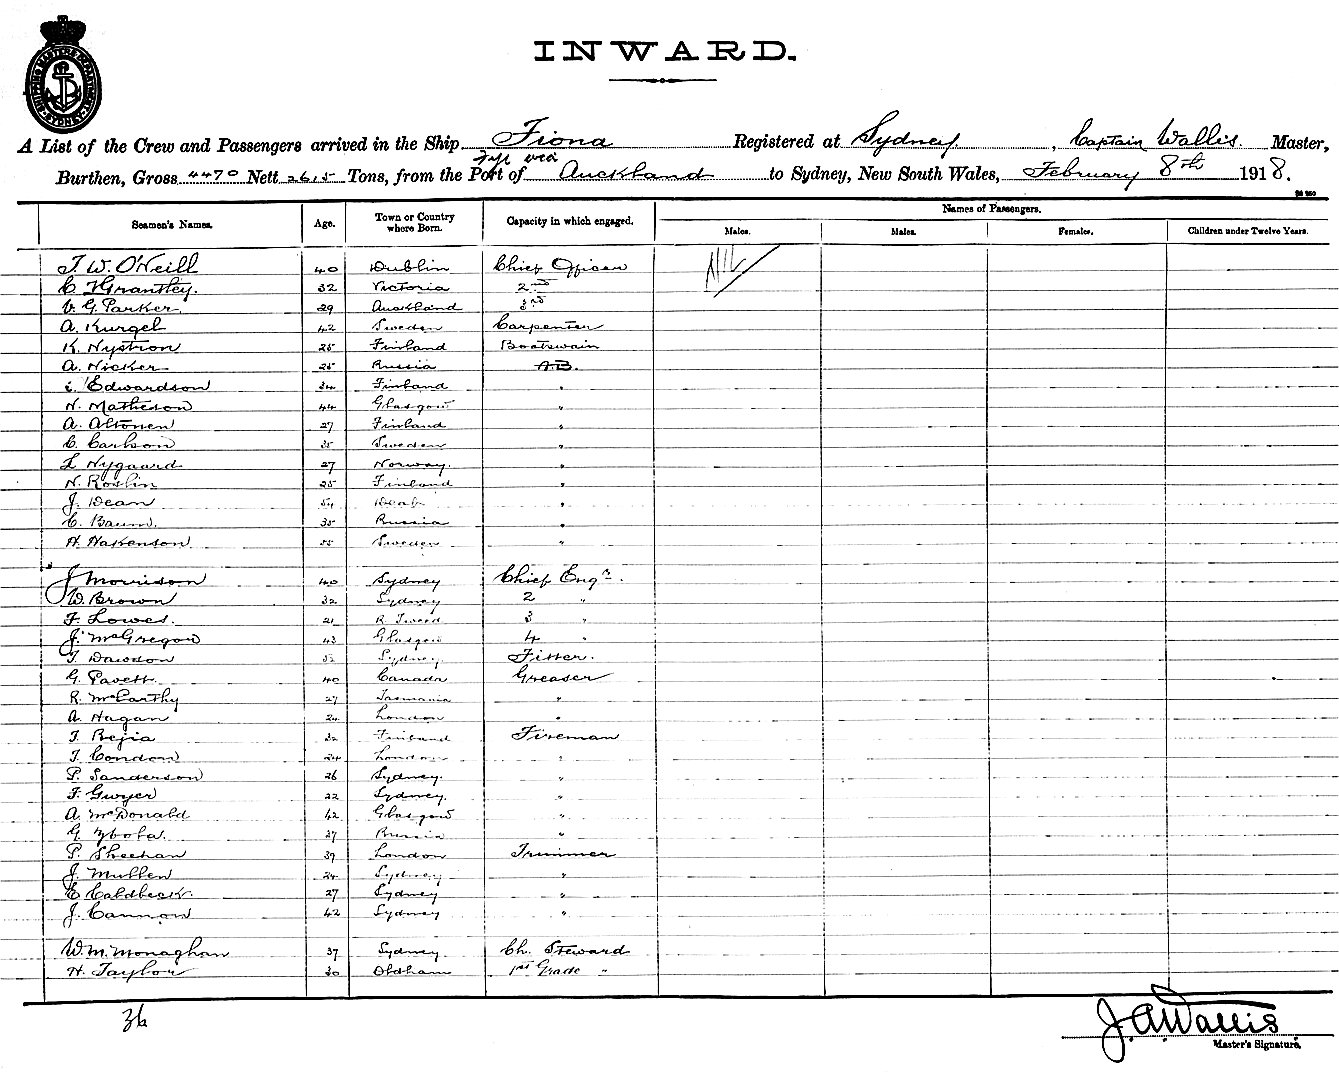 SHIPPING MASTERS DEPARTMENT SYDNEY
INWARD.
A List of the Crew and Passengers arrived in the Ship Fiona Registered at Sydney, Captain Wallis. Master,
Burthen, Gross 4470 Nett 2615 Tons, from the Port of Auckland to Sydney, New South Wales, February 8th 1918.
Seamen's Names. Age. Town or Country where Born. Capacity in which engaged. Names of Passengers.
Males. Males. Females. Children under Twelve Years.
T. W. O'Neill 40 Dublin Chief Officer NIL
C. Grantley. 32 Victoria 2nd
V. G. Parker 29 Auckland 3rd
A. Kurgel 42 Sweden Carpenter
K. Nystron 25 Finland Boatswain
A. Nicker 25 Russia A.B.
Edwardson 34 Finland "
N. Matheson 44 Glasgow "
A. Altonen 27 Finland "
C. Carlson 35 Sweden "
L Nygaard 27 Norway. "
N. Roslin 25 Finland "
J. Dean 54 "
C. Baum. 35 Russia "
H. Hakenson 55 Sweden "
J Morrison 40 Sydney Chief Engr.
W. Brown 32 Sydney 2 "
F. Lowes. 21 R. Tweed 3 "
J. McGregor 43 Glasgow 4 "
T. Dawson 52 Sydney Fitter.
G. Pavett 40 Canada Greaser
R. McCarthy 27 Tasmania "
A. Hagan 24 London "
T. Rejia 32 Finland Fireman
T. Condon 24 London "
P. Sanderson 26 Sydney. "
F. Gwyer 22 Sydney. "
A. McDonald 42 Glasgow "
G. 27 Russia "
P. Sheehan 39 London Trimmer
J. Mullen 24 Sydney "
E Caldbeck 27 Sydney "
J. Cannon 42 Sydney "
W. M. Monaghan 37 Sydney. Ch. Steward
H. Taylor 30 Oldham 1st Grade "
36
J. A. Wallis
Master's Signature.